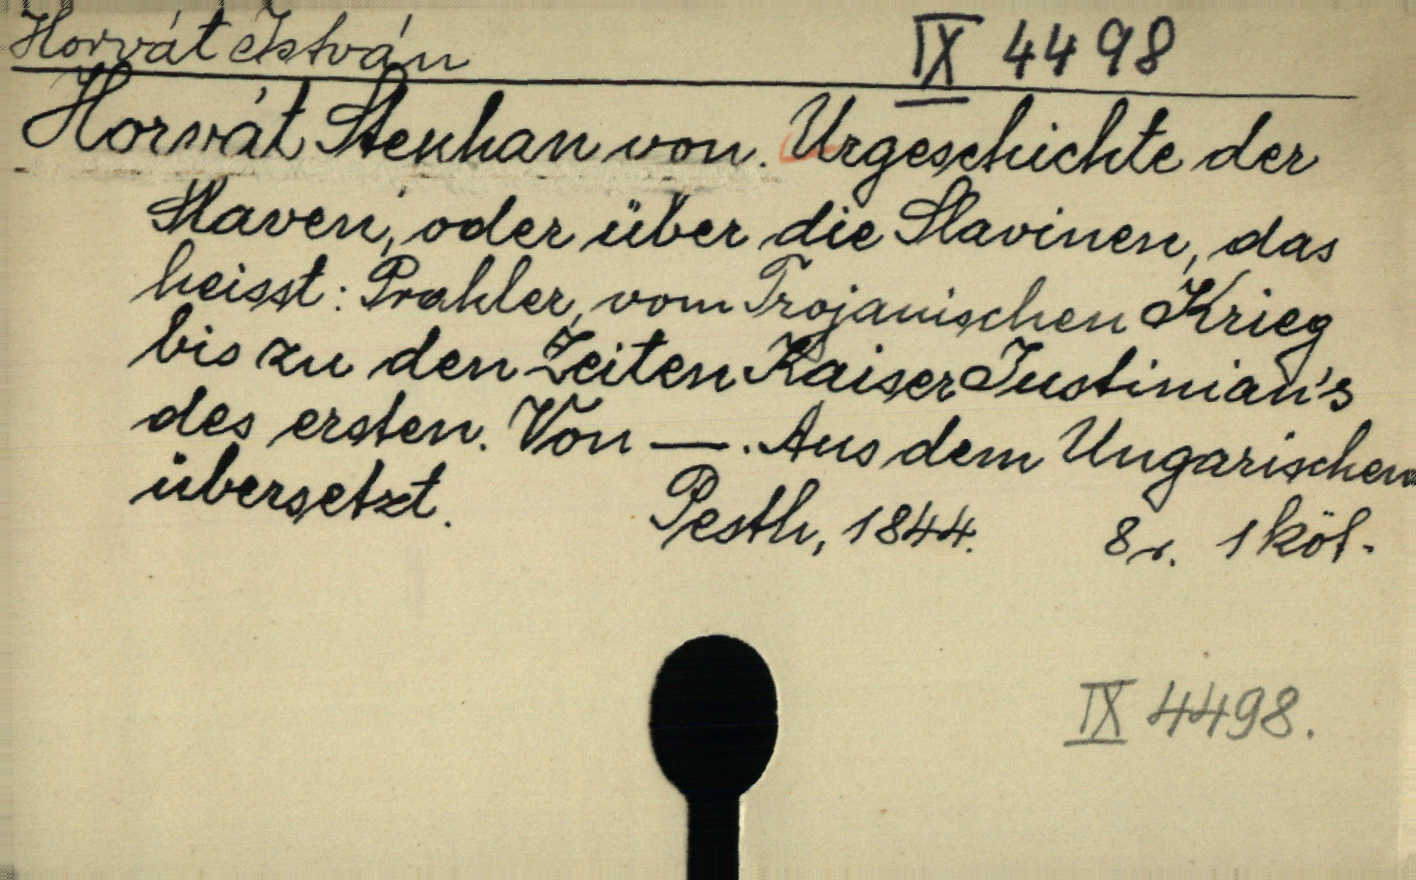 Horvát István IX 4498
Horvát Stephan von. Urgeschichte der
Slaven, oder über die Slavinen, das
heisst: Prahler, vom Trojanischen Krieg
bis zu den Zeiten Kaiser Justinian's
des ersten. Von —. Aus dem Ungarischen
übersetzt. Pesth, 1844. 8r. 1 köt.
IX 4498.